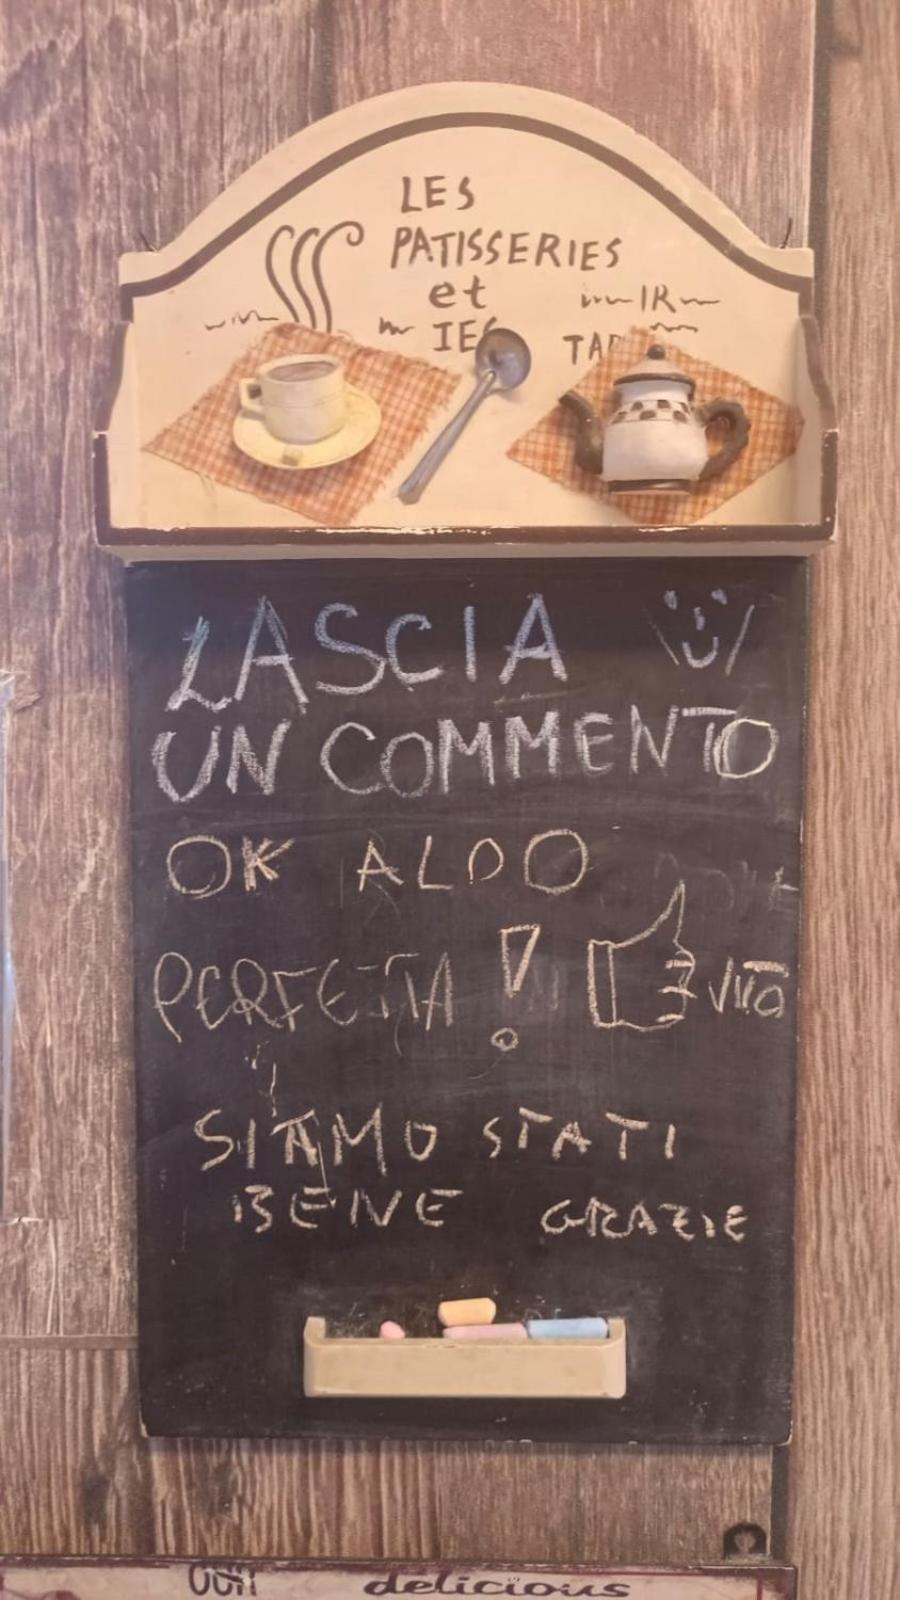 LES
PATISSERIES
et
IR
LASCIA
UN COMMENTO
OK ALDO
PERFETTA! VITO
SIAMO STATI
BENE GRAZIE
delicious